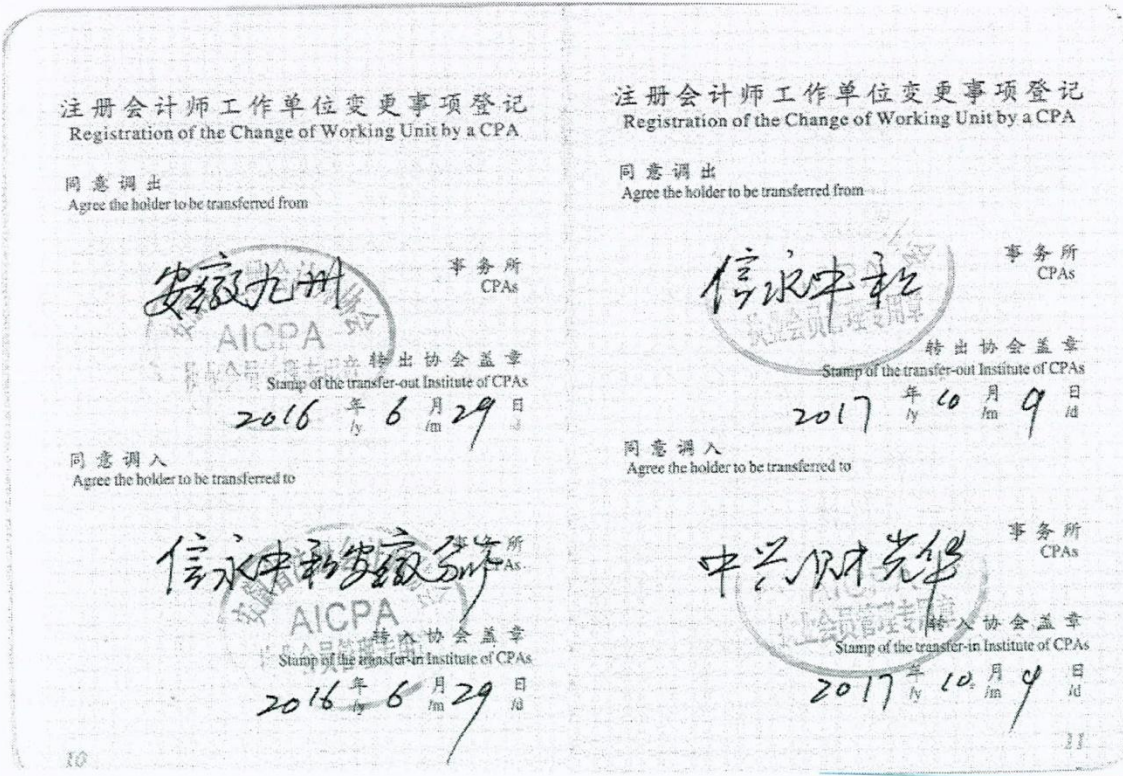 注册会计师工作单位变更事项登记
Registration of the Change of Working Unit by a CPA
同意调出
Agree the holder to be transferred from
安徽九州
事务所
CPAs
AICPA
转出协会盖章
Stamp of the transfer-out Institute of CPAs
2016 年 6 月 29 日
/y /m
同意调入
Agree the holder to be transferred to
信永中和安徽分所
事务所
CPAs
AICPA
转入协会盖章
Stamp of the transfer-in Institute of CPAs
2016 年 6 月 29 日
/y /m /d
10
注册会计师工作单位变更事项登记
Registration of the Change of Working Unit by a CPA
同意调出
Agree the holder to be transferred from
信永中和
事务所
CPAs
执业会员管理专用章
转出协会盖章
Stamp of the transfer-out Institute of CPAs
2017 年 10 月 9 日
/y /m /d
同意调入
Agree the holder to be transferred to
中兴财光华
事务所
CPAs
AICPA
业会员管理专用章
转入协会盖章
Stamp of the transfer-in Institute of CPAs
2017 年 10 月 9 日
/y /m /d
11